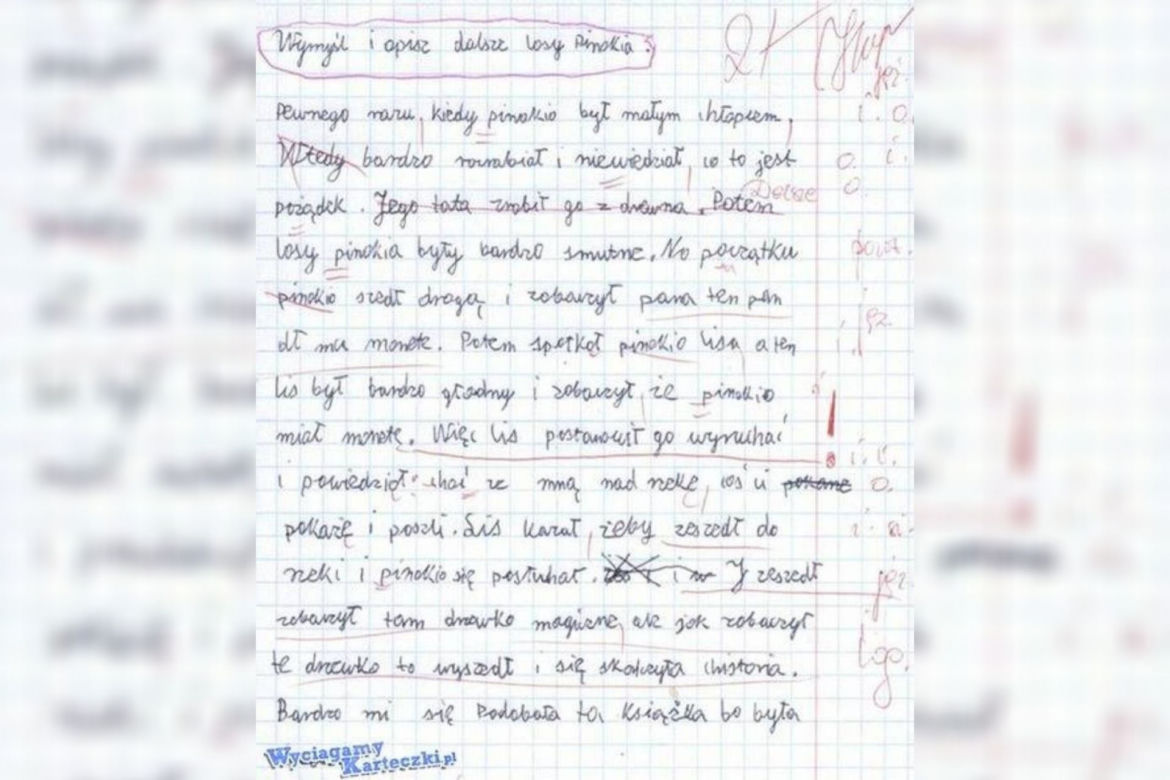 Wymyśl i opisz dalsze losy Pinokia.
2+
Pewnego razu, kiedy pinokio był małym chłopcem,
i. o.
Wtedy bardzo rozrabiał i niewiedział, co to jest
o. i.
pożądek. Jego tata zrobił go z drewna. Potem
Dalsze
o.
losy pinokia były bardzo smutne. Na początku
powt.
pinokio szedł drogą i zobaczył pana ten pan
dł mu monete. Potem spotkoł pinokio lisa a ten
i. jęz.
lis był bardzo głodny i zobaczył, że pinokio
miał monetę. Więc lis postanowił go wyruchać
!
i powiedział: choć ze mną nad rzekę, coś ci pokame
o.
pokażę i poszli. Lis kazał, żeby zeszedł do
rzeki i pinokio się posłuchał. i J zeszedł
jęz.
zobaczył tam drzewko magiczne, ale jak zobaczył
te drzewko to wyszedł i się skończyła chistoria.
log.
Bardzo mi się Podobała ta książka bo była
WyciagamyKarteczki.pl